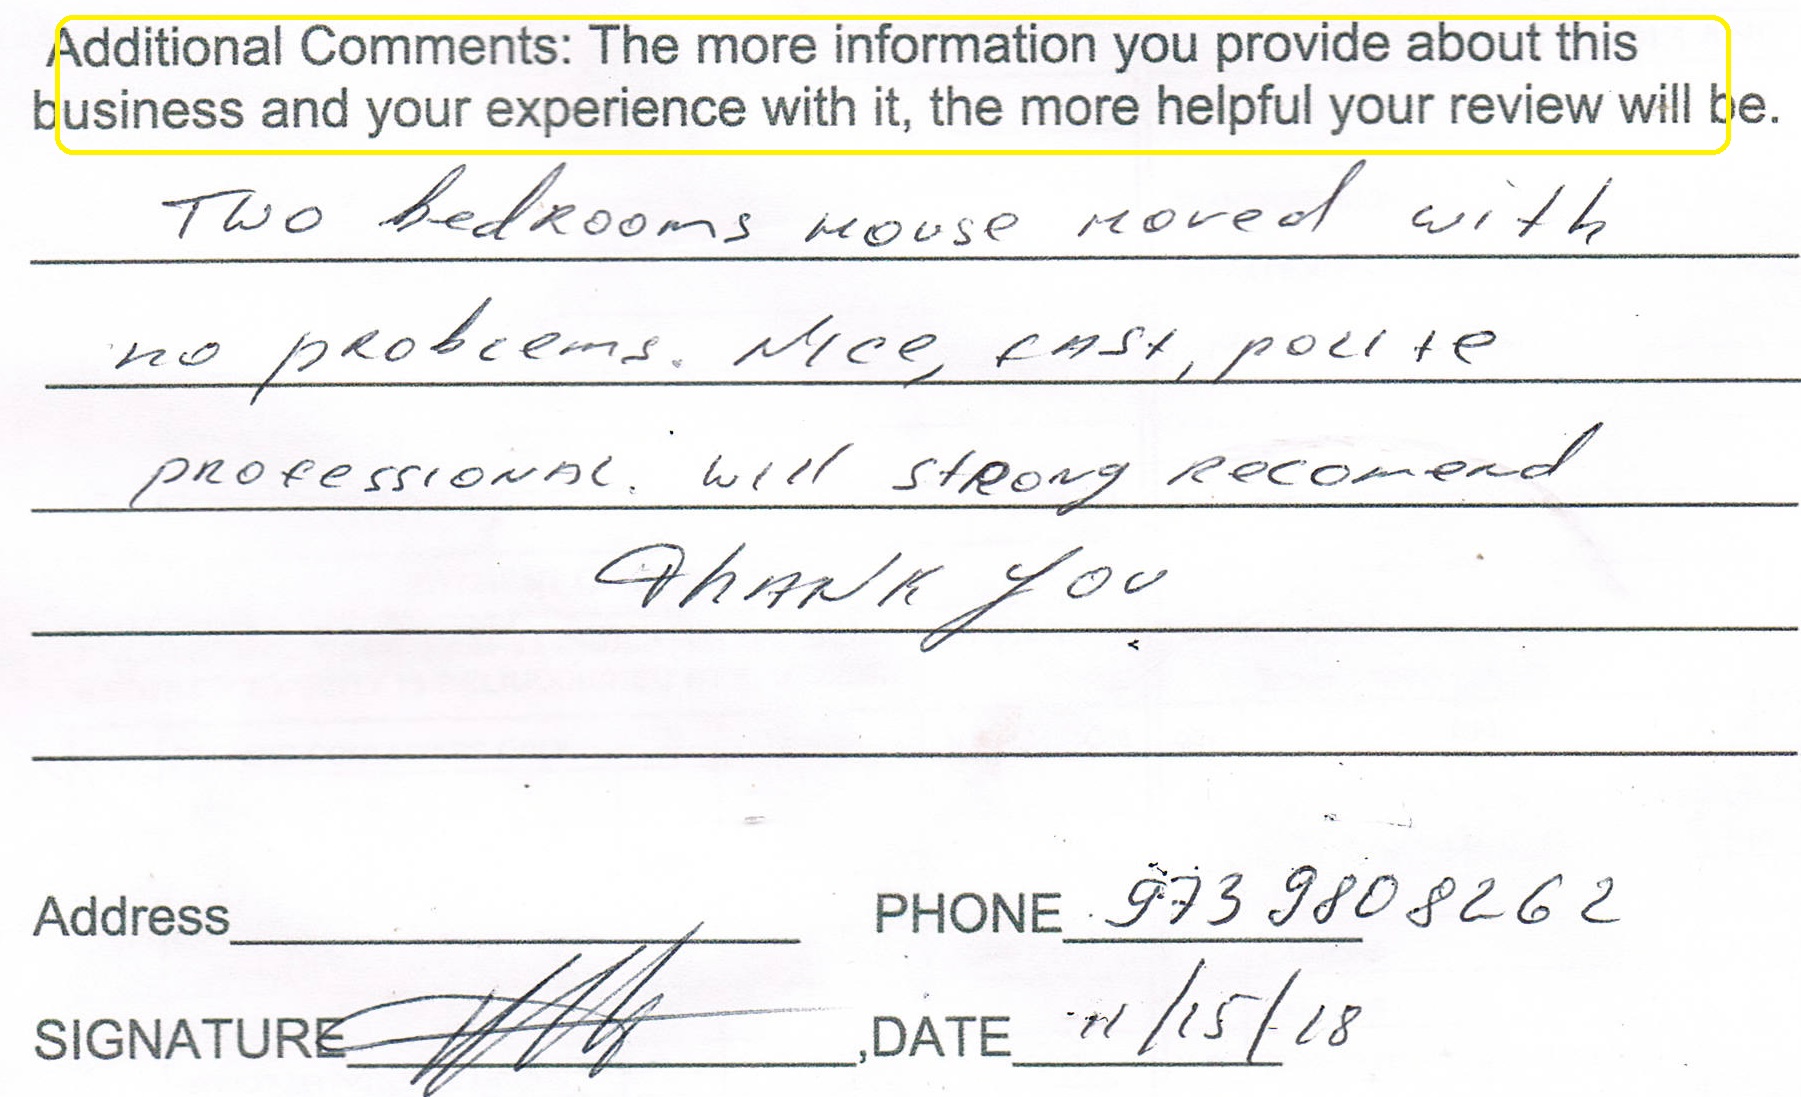 Additional Comments: The more information you provide about this
business and your experience with it, the more helpful your review will be.
Two bedrooms house moved with
no problems. Nice, fast, polite
professional. will strong recomend
Thank you
Address PHONE 973 980 8262
SIGNATURE ,DATE 11/15/18